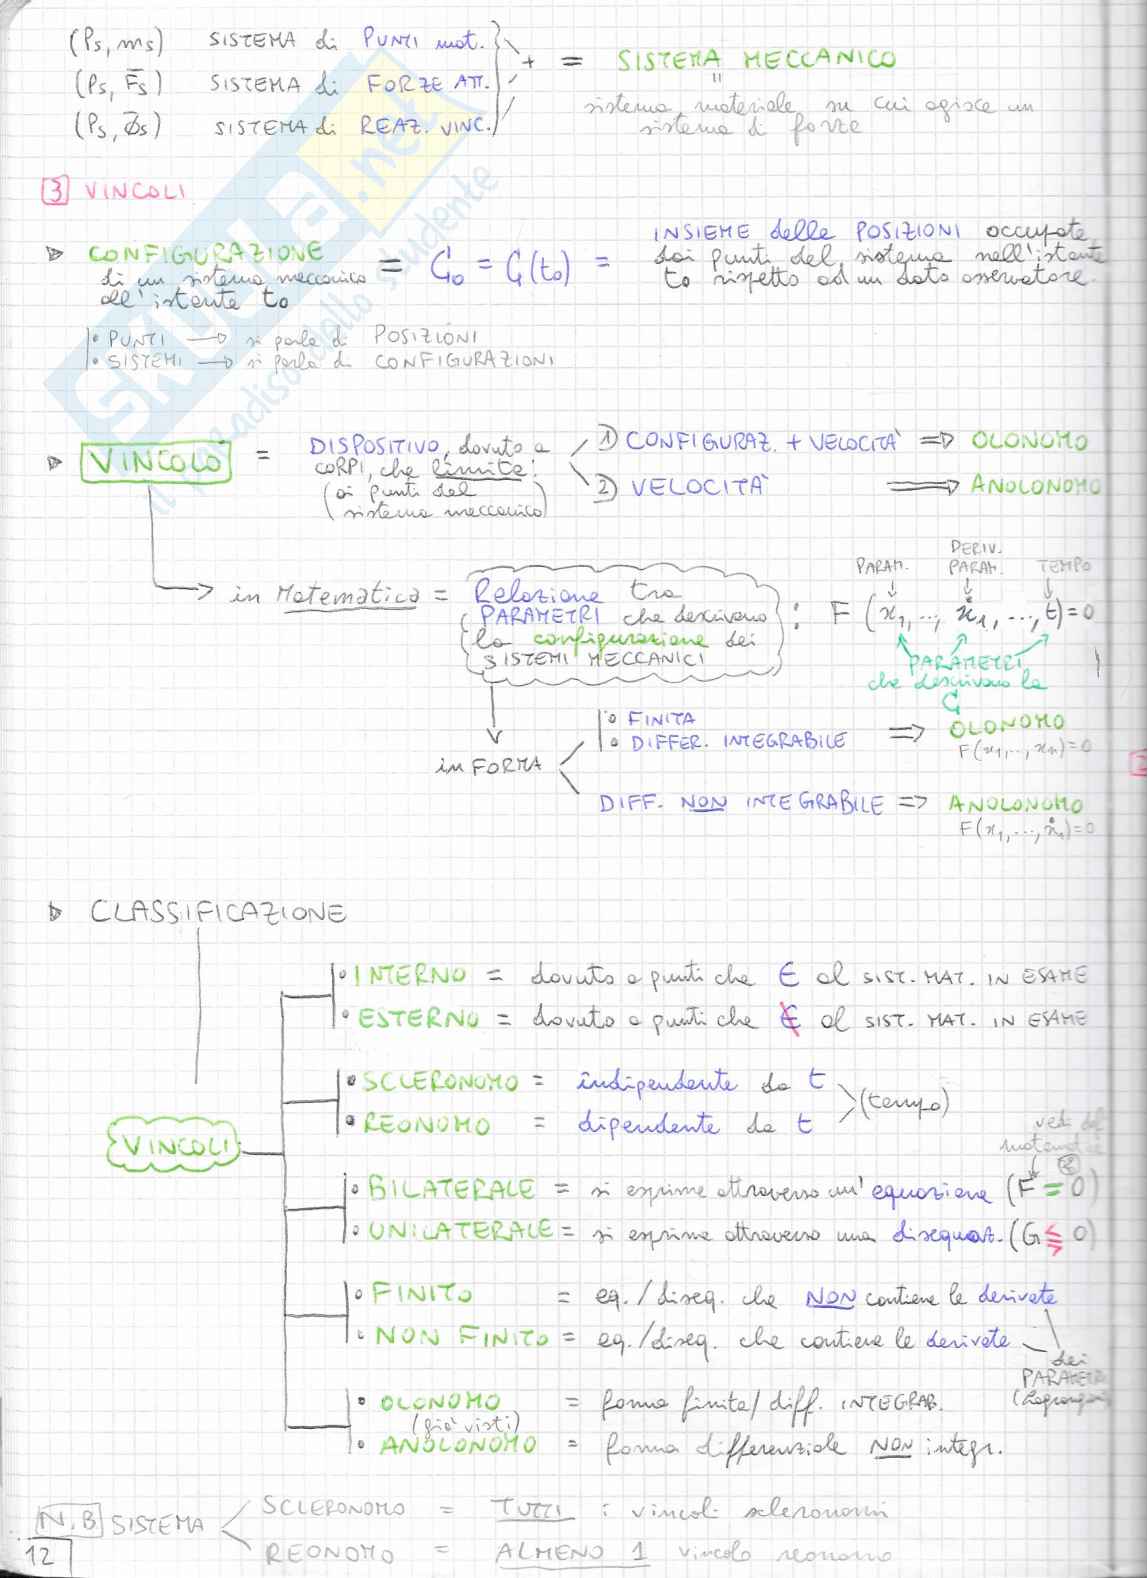 (Ps, ms) SISTEMA di PUNTI mat.
(Ps, F̄s) SISTEMA di FORZE ATT. + = SISTEMA MECCANICO
(Ps, Φ̄s) SISTEMA di REAZ. VINC.
"
sistema materiale su cui agisce un
sistema di forze
3 VINCOLI
CONFIGURAZIONE
di un sistema meccanico
all'istante to
= Co = C(to) =
INSIEME delle POSIZIONI occupate
dai punti del sistema nell'istante
to rispetto ad un dato osservatore.
• PUNTI → si parla di POSIZIONI
• SISTEMI → si parla di CONFIGURAZIONI
VINCOLO =
DISPOSITIVO, dovuto a
CORPI, che limita:
(ai punti del
sistema meccanico)
1) CONFIGURAZ. + VELOCITÀ ⇒ OLONOMO
2) VELOCITÀ ⇒ ANOLONOMO
in Matematica =
Relazione tra
PARAMETRI che descrivono
la configurazione dei
SISTEMI MECCANICI
:
PARAM. DERIV. PARAM. TEMPO
F (x1, .., ẋ1, ..., t) = 0
PARAMETRI
che descrivono la
C
in FORMA
• FINITA
• DIFFER. INTEGRABILE ⇒ OLONOMO
F(x1, .., xn) = 0
DIFF. NON INTEGRABILE ⇒ ANOLONOMO
F(x1, ..., ẋ1) = 0
CLASSIFICAZIONE
VINCOLI
• INTERNO = dovuto a punti che ∈ al SIST. MAT. IN ESAME
• ESTERNO = dovuto a punti che ∉ al SIST. MAT. IN ESAME
• SCLERONOMO = indipendente da t
• REONOMO = dipendente da t
(tempo)
• BILATERALE = si esprime attraverso un' equazione (F = 0)
• UNILATERALE = si esprime attraverso una disequaz. (G ≤ 0)
• FINITO = eq./diseq. che NON contiene le derivate
• NON FINITO = eq./diseq. che contiene le derivate
dei
• OLONOMO = forma finita/ diff. INTEGRAB.
(già visti)
• ANOLONOMO = forma differenziale NON integr.
N.B SISTEMA
SCLERONOMO = TUTTI i vincoli scleronomi
REONOMO = ALMENO 1 vincolo reonomo
12
SKUOLA.net
il paradiso dello studente